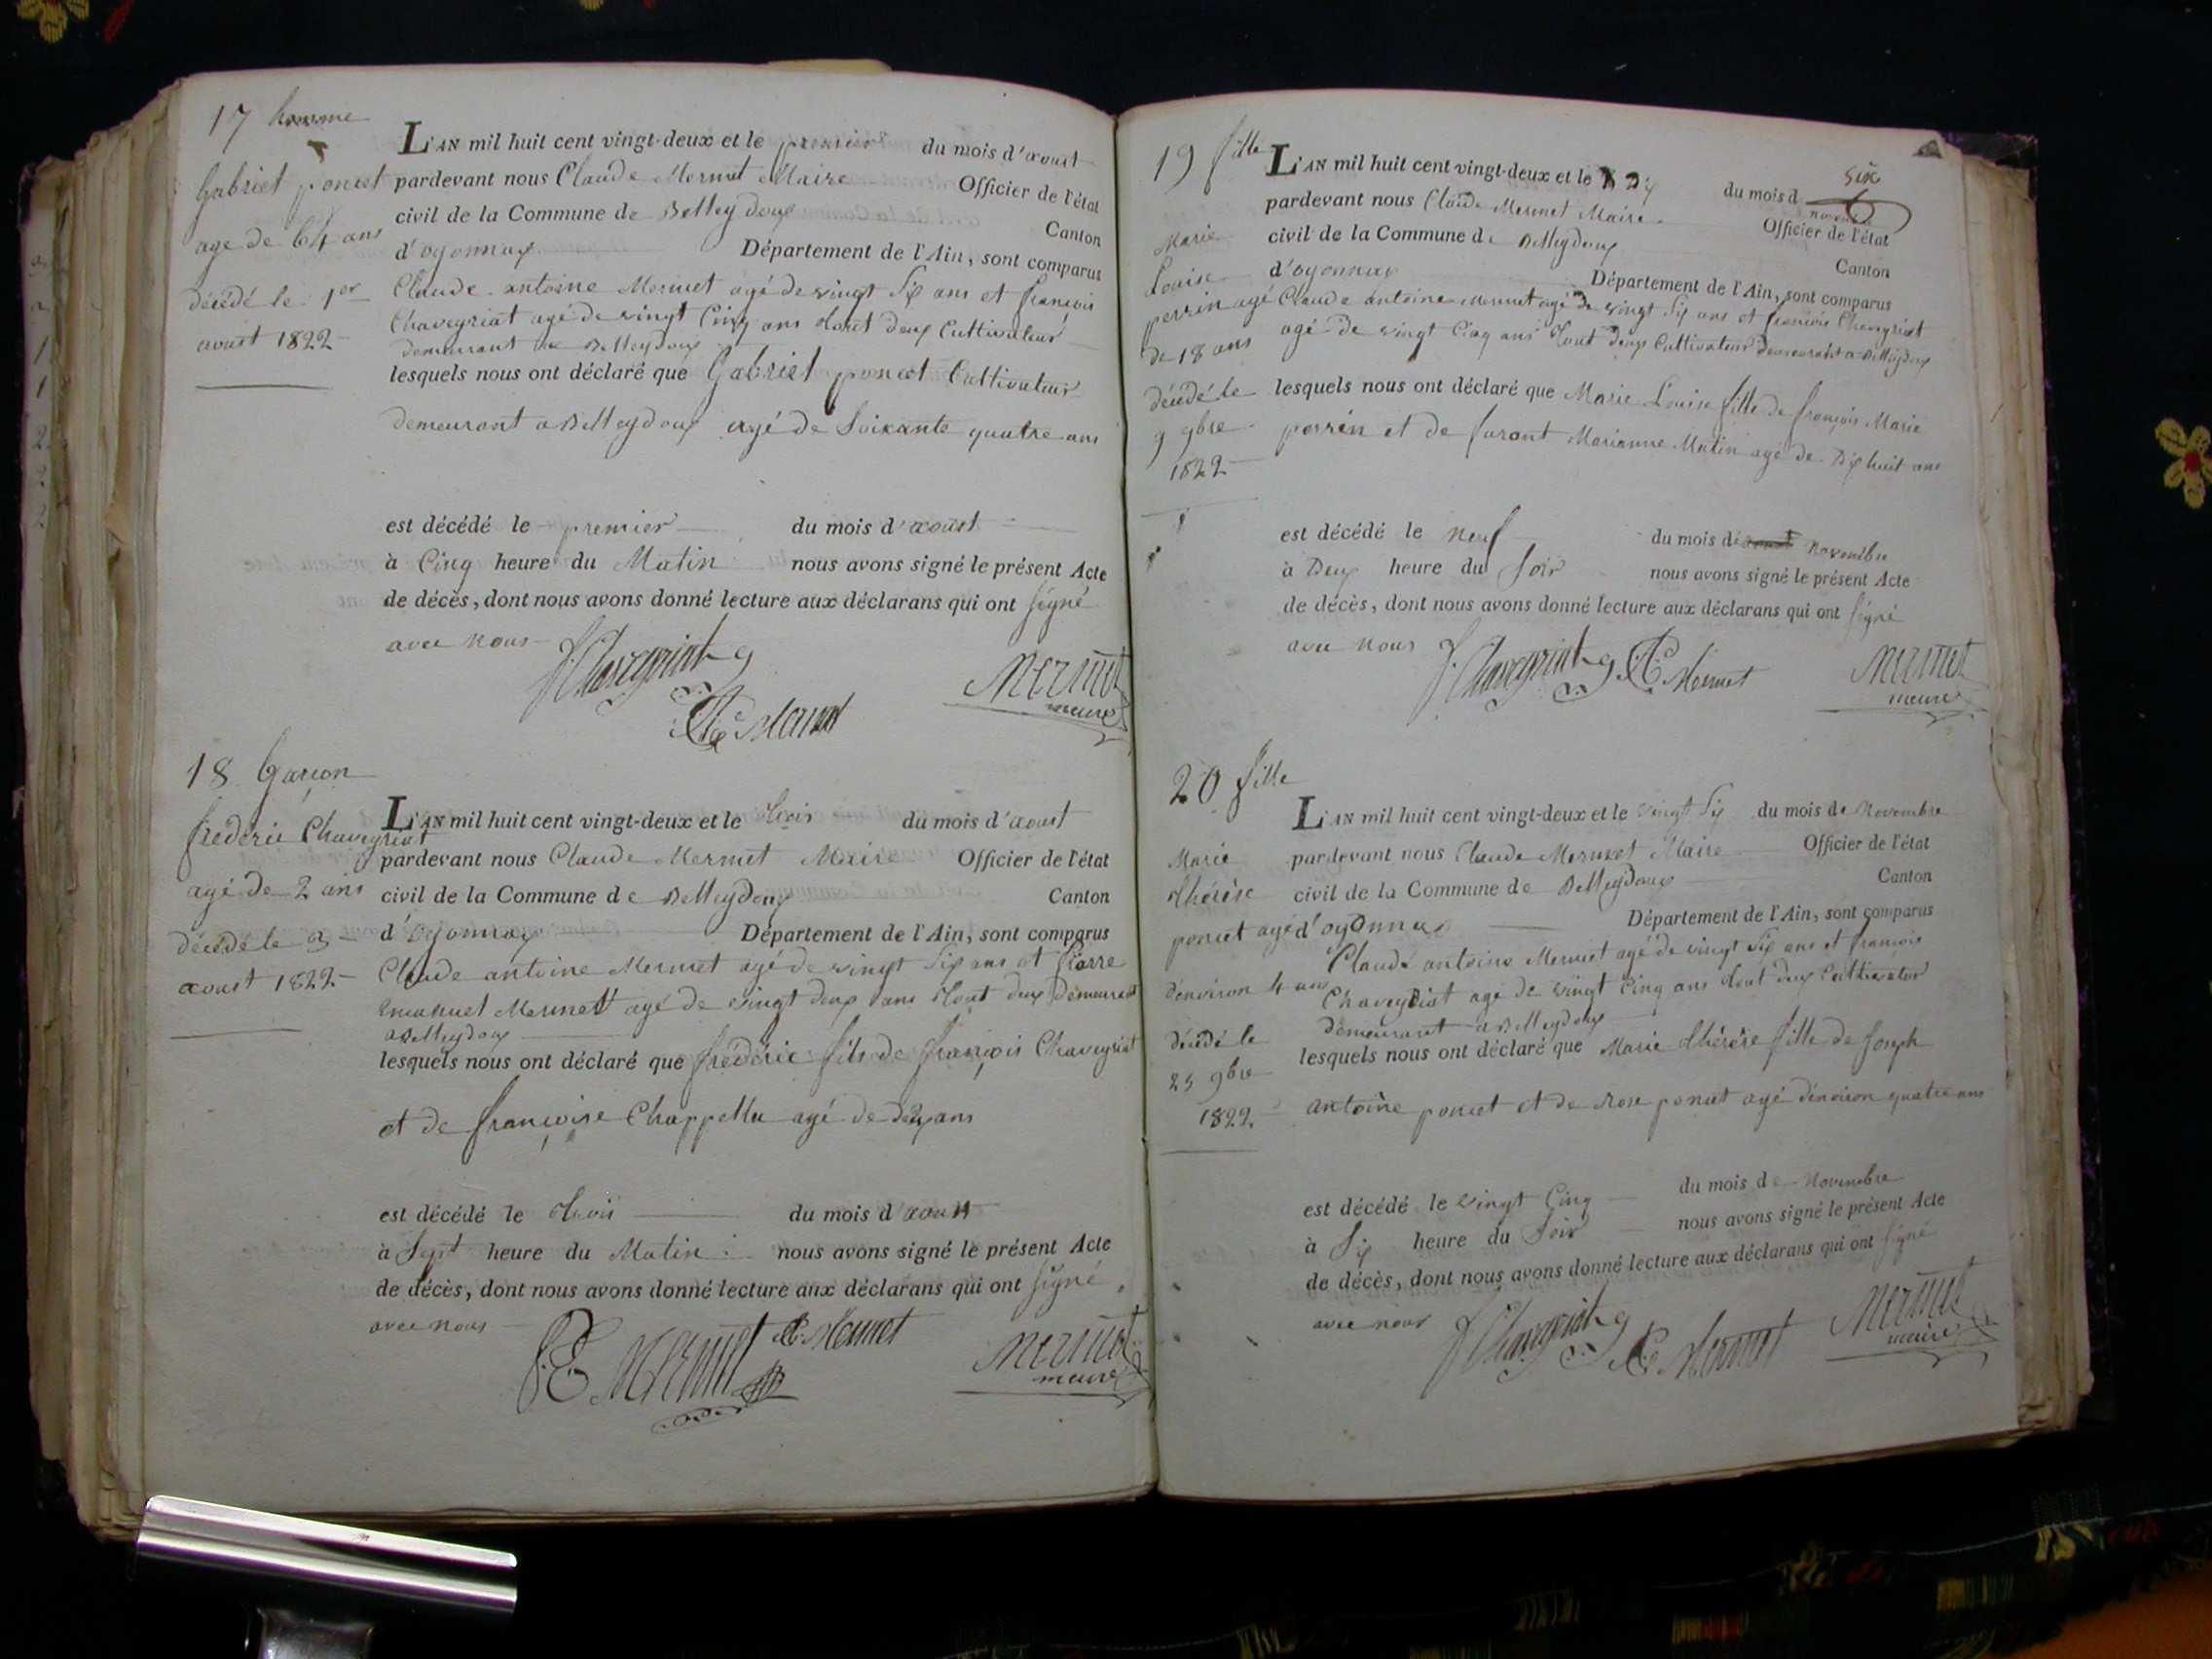 17 homme
Gabriel poncet
age de 64 ans
décédé le 1er
aoust 1822
L'AN mil huit cent vingt-deux et le premier du mois d'aoust
pardevant nous Claude Mermet Maire Officier de l'état
civil de la Commune de Belleydoux Canton
d'oyonnax Département de l'Ain, sont comparus
Claude antoine Mermet agé de vingt Six ans et françois
Chaveyriat agé de vingt Cinq ans tout deux Cultivateur
demeurant a Belleydoux
lesquels nous ont déclaré que Gabriel poncet Cultivateur
demeurant a Belleydoux agé de Soixante quatre ans
est décédé le premier du mois d'aoust
à Cinq heure du Matin nous avons signé le présent Acte
de décès, dont nous avons donné lecture aux déclarans qui ont Signé
avec nous
f Chaveyriat
Mermet
maire
C A Mermet
18 Garçon
frédéric Chaveyriat
agé de 2 ans
décédé le 3
aoust 1822
L'AN mil huit cent vingt-deux et le trois du mois d'aoust
pardevant nous Claude Mermet Maire Officier de l'état
civil de la Commune de Belleydoux Canton
d'oyonnax Département de l'Ain, sont comparus
Claude antoine Mermet agé de vingt Six ans et pierre
Emanuel Mermet agé de vingt deux ans tout deux demeurant
a Belleydoux
lesquels nous ont déclaré que frédéric fils de françois Chaveyriat
et de françoise Chappellu agé de deux ans
est décédé le trois du mois d'aoust
à Sept heure du Matin nous avons signé le présent Acte
de décès, dont nous avons donné lecture aux déclarans qui ont Signé
avec nous
P E Mermet C A Mermet
Mermet
maire
19 fille
Marie
Louise
perrin agé
de 18 ans
décédé le
9 9bre
1822
L'AN mil huit cent vingt-deux et le Dix du mois d Six
novembre
pardevant nous Claude Mermet Maire Officier de l'état
civil de la Commune de Belleydoux Canton
d'oyonnax Département de l'Ain, sont comparus
Claude antoine Mermet agé de vingt Six ans et françois Chaveyriat
agé de vingt Cinq ans tout deux Cultivateur demeurant a Belleydoux
lesquels nous ont déclaré que Marie Louise fille de françois Marie
perrin et de Marianne Matin agé de Dix huit ans
est décédé le Neuf du mois de novembre
à Deux heure du Soir nous avons signé le présent Acte
de décès, dont nous avons donné lecture aux déclarans qui ont Signé
avec nous
f Chaveyriat C A Mermet
Mermet
maire
20 fille
Marie
thérèse
poncet agé
d'environ 4 ans
décédé le
25 9bre
1822
L'AN mil huit cent vingt-deux et le vingt Six du mois de Novembre
pardevant nous Claude Mermet Maire Officier de l'état
civil de la Commune de Belleydoux Canton
d'oyonnax Département de l'Ain, sont comparus
Claude antoine Mermet agé de vingt Six ans et françois
Chaveyriat agé de vingt Cinq ans tout deux Cultivator
demeurant a Belleydoux
lesquels nous ont déclaré que Marie thérèse fille de Joseph
antoine poncet et de rose poncet agé d'environ quatre ans
est décédé le vingt Cinq du mois de Novembre
à Six heure du Soir nous avons signé le présent Acte
de décès, dont nous avons donné lecture aux déclarans qui ont Signé
avec nous
f Chaveyriat C A Mermet
Mermet
maire